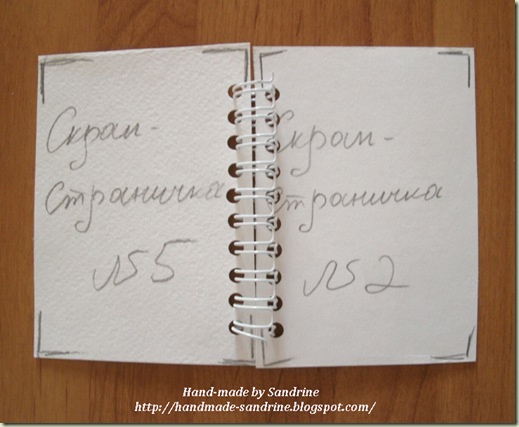 Скрап-
Страничка
№5
Скрап-
Страничка
№2
Hand-made by Sandrine
http://handmade-sandrine.blogspot.com/